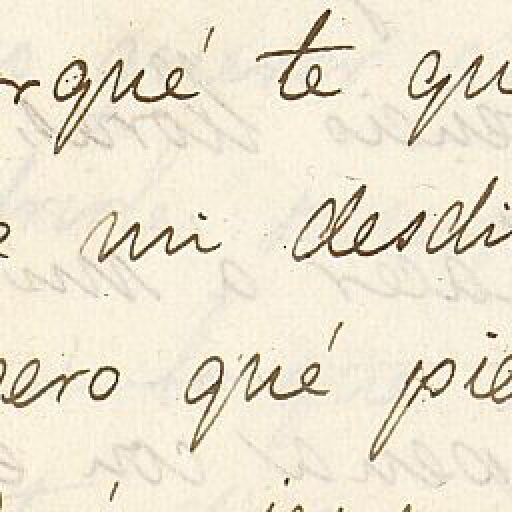 rqué te qu
e mi desdi
pero qué pie